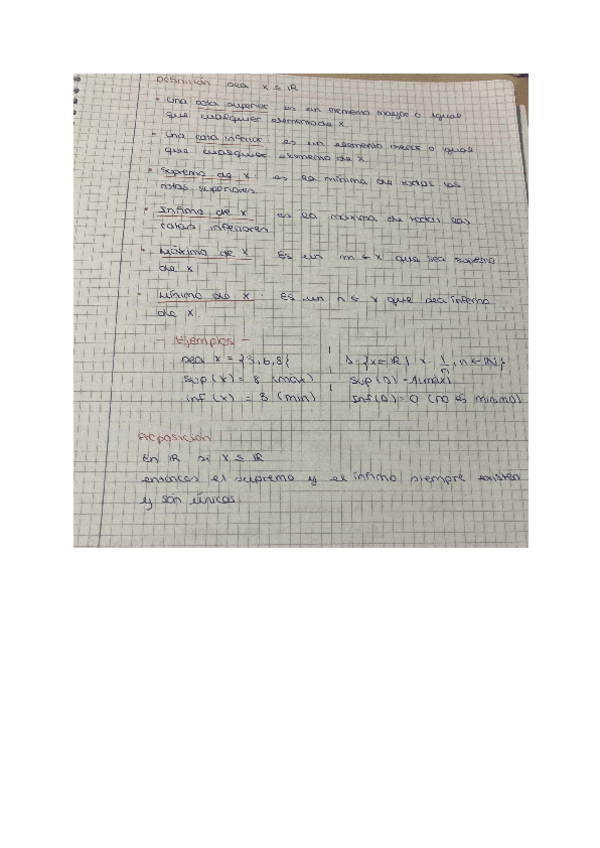 Definición sea X ⊆ ℝ
• Una cota superior es un elemento mayor o igual
que cualquier elemento de X.
• Una cota inferior: es un elemento menor o igual
que cualquier elemento de X
• Supremo de X: es la mínima de todas las
cotas superiores.
• Ínfimo de X es la máxima de todas las
cotas inferiores
• Máximo de X Es un m ∈ X que sea supremo
de X
• Mínimo de X. Es un n ∈ X que sea ínfimo
de X.
- Ejemplos -
Sea X = {3,6,8} | A = {x ∈ ℝ | x = 1/n, n ∈ ℕ}
Sup(X) = 8 (max) | Sup(A) = 1(max)
inf(X) = 3 (min) | Inf(A) = 0 (no es mínimo)
Proposición
En ℝ si X ⊆ ℝ
entonces el supremo y el ínfimo siempre existen
y son únicos.